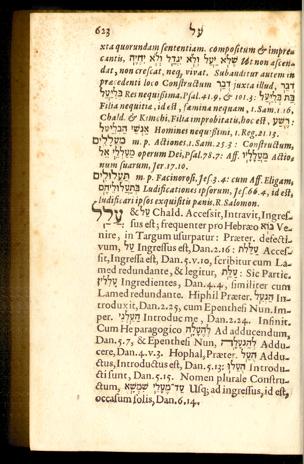 623 על
xta quorundam sententiam. compositum & impre-
cantis, שלא יעל ולא יגדל ולא יחיה ut non ascen-
dat, non crescat, neq; vivat. Subauditur autem in
præcedenti loco Constructum דבר juxta illud, דבר
בליעל Rei nequissima. Psal. 41.9, & 101.3: בת בליעל
Filia nequitiæ, id est, fæmina nequam, 1. Sam. 1.16.
Chald. & Kimchi, Filia improbitatis, hoc est, רשע:
אנשי הבליעל Homines nequissimi, 1. Reg. 21.13.
מעללים m. p. Actiones. 1. Sam. 25.3: Constructum,
מעללי אל operum Dei, Psal. 78.7: Aff. מעלליו Actio-
num suarum, Jer. 17.10.
תעלולים m. p. Facinorosi, Jes. 3.4: cum Aff. Eligam,
בתעלוליהם Ludificationes ipsorum, Jes. 66.4, id est,
ludificari ipsos exquisitis pœnis. R. Salomon.
עלל & על Chald. Accessit, Intravit, Ingres-
sus est; frequenter pro Hebræo בוא Ve-
nire, in Targum usurpatur: Præter. defecti-
vum, על Ingressus est, Dan. 2.16: עלת Acces-
sit, Ingressa est, Dan. 5. v. 10, scribitur cum La-
med redundante, & legitur, עלת: Sic Partic.
עלין Ingredientes, Dan. 4.4, similiter cum
Lamed redundante. Hiphil Præter. הנעל In-
troduxit, Dan. 2.25, cum Epenthesi Nun. Im-
per. העלני Introduc me, Dan. 2.24. Infinit.
Cum He paragogico להעלה Ad adducendum,
Dan. 5.7, & Epenthesi Nun, להנעלה Addu-
cere, Dan. 4. v. 3. Hophal, Præter. העל Addu-
ctus, Introductus est, Dan. 5.13: העלו Introdu-
cti sunt, Dan. 5.15. Nomen plurale Constru-
ctum, עד־מעלי שמשא Usq; ad ingressus, id est,
occasum solis, Dan. 6.14.